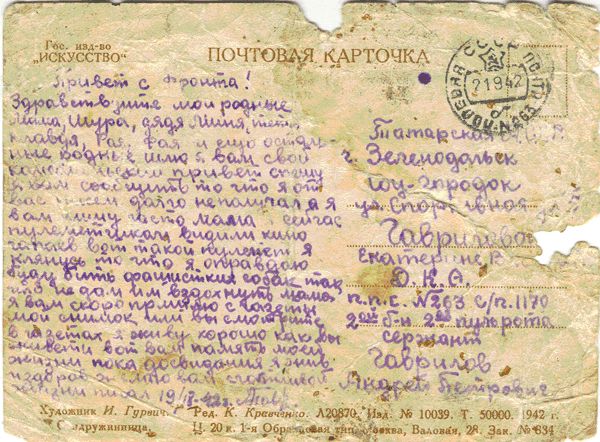 Гос. изд-во
"ИСКУССТВО"
ПОЧТОВАЯ КАРТОЧКА
ПОЛЕВАЯ ПОЧТА
21 9 42
Привет с Фронта!
Здравствуйте мои родные
Миша, Шура, дядя Миня, тетя
Клавдя, Рая, Фая и еще осталь
ные родные шлю я вам свой
привет спешу
я вам сообщить то что я от
вас писем долго неполучал а я
вам пишу часто мама сейчас
пулеметчиком видили кино
чапаев вот такой пулемет я
клянусь то что я оправдаю
буду бить фашистких собак так
что не дам им вздохнуть мама
я вам скоро пришлю с газеты
мой снимок или вы смотрите
в газетах я живу хорошо как вы
живете вот вам память моей
жизни пока досвидания я жив
и здоров
писал 19/
Татарская
г. Зеленодольск
соц-городок
ул. Спортивная
Гаврилова
Екатерине
Д.К.А.
п.п.с. №263 с/п.1170
2ой б-н 2ая пульрота
сержант
Гаврилов
Андрей Петрович
Художник И. Гурвич
Ред. К. Кравченко. Л20870. Изд. № 10039. Т. 50000. 1942 г.
Сандружинница.
Ц. 20 к. 1-я Образцовая тип. Москва, Валовая, 28. Зак. № 834